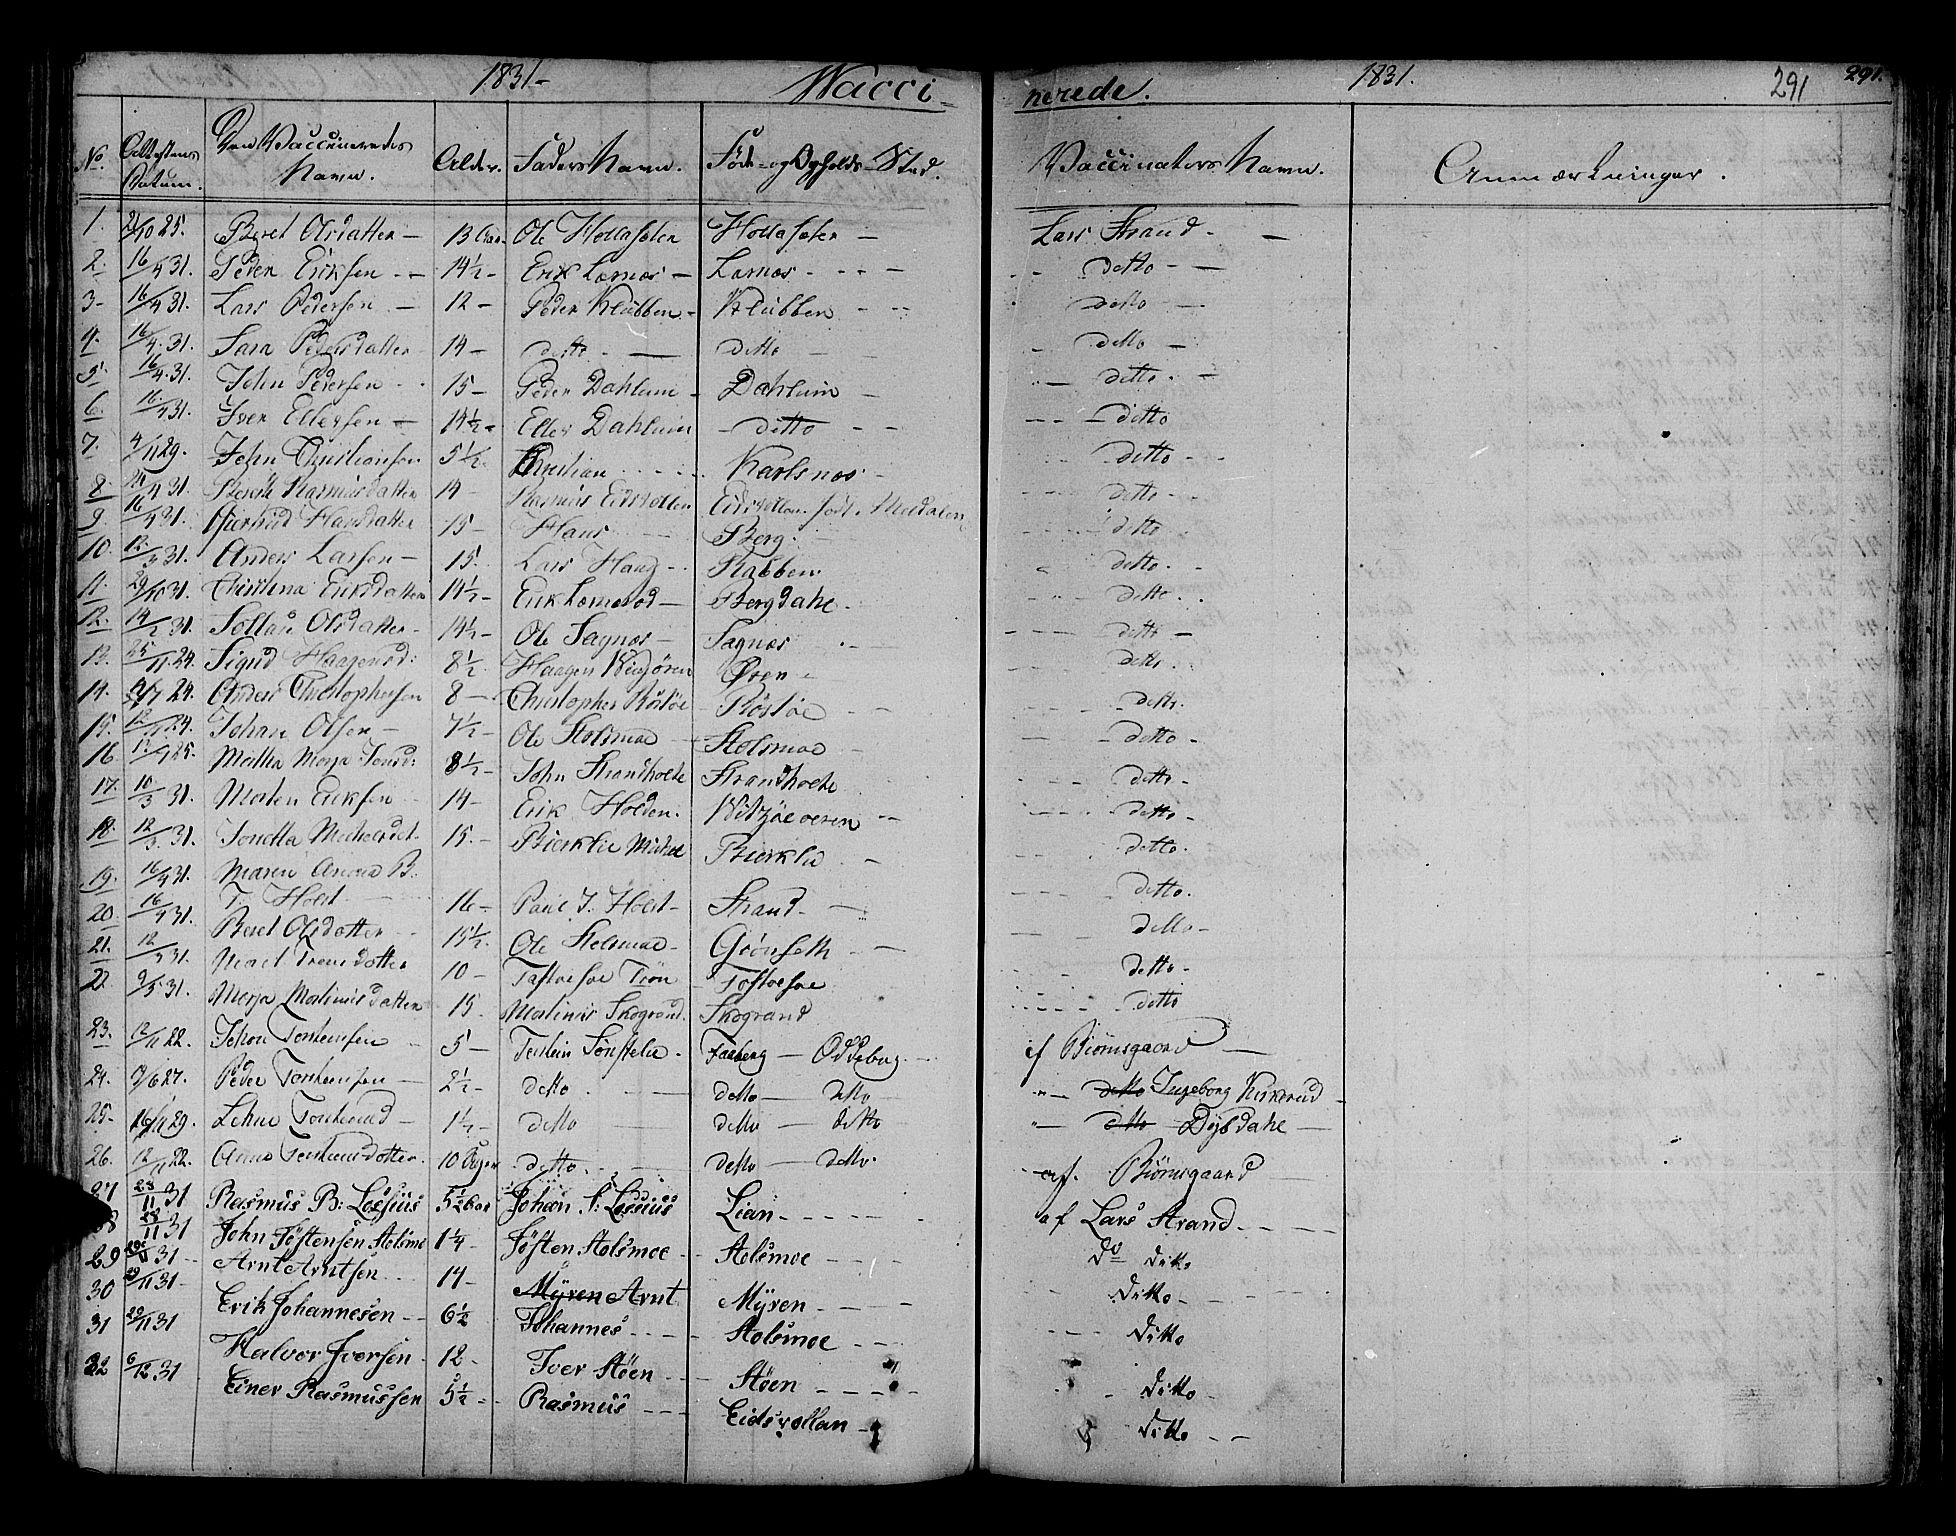 1831- Vacci- nerede. 1831. 291 291.
No. Attestens Datum. Den Vaccineredes Navn. Alder. Faders Navn. Føde- og Opholds-Sted. Vaccinateurs Navn. Anmærkninger.
1. 25. Beret Olsdatter - 13 Aar Ole Hollasæter Hollasæter - Lars Strand. -
2. 16/4 31. Peder Eriksen - - 14½ - Erik Lernæs - Lernæs - - - - detto - -
3- 16/4 31. Lars Pedersen - 12 - Peder Klubben - Klubben - - - detto -
4. 16/4 31. Sara Pedersdatter 14 - detto - - detto - detto -
5. 16/4 31. John Pedersen - - 15 - Peder Dahlum - Dahlum - - detto. -
6. 16/4 31. Iver Ellefsen - 14½ - Ellef Dahlum - ditto - - - - - ditto
7. 4/11 29. John Christiansen 5½ Christian - - - - Karlsnæs - - - detto - -
8 31. Berith Rasmusdatter 14 - Rasmus Eidsvollen Eidsvollen født i Meldalen - - - detto -
9 16/4 31. Giertrud Hansdatter 15 - Hans - Berg. - - - detto
10. 12/3 31. Anders Larsen - 15. Lars Haug - - Rabben detto. -
11. 31. Christina Eriksdatter 14½ - Erik Bergdahl - - - detto. -
12. 14/2 31. Olsdatter - 14½ - Ole Sagnæs - Sagnæs - - - - - detto -
13. 25/11 24. Sigrid Haagensd: 8½ Haagen Øren - - - - detto.
14. 24. Anders Christophersen 8 - Christopher Røstøe - Røstøe - - detto.
15. 24. Johan Olsen - 7½ - Ole Stolsmoe - Stolsmoe - - detto -
16 25. Meretha Marja Jonsd: 8½ - John Strandholte Strandholte - - - detto -
17. 10/3 31. Morten Eriksen - - 14 - Erik Holden. - - - - - detto -
18. 12/3 31. Jonetta Michelsdat. 15. - Bierklie Michel Bierklie - - - - detto.
19. 16/4 31. Maren B: T. Holst - 16 - Paul T. Holst - Strand - - - - - detto.
20. 16/4 31. Beret Olsdatter - - 15½. Ole Stolsmoe - Grønseth - - - - detto -
21. 12/3 31. Marit Troensdatter 10 - Toftaasæ Trøn Toftaasæ - - detto -
22. 9/5 31. Merja Malinusdatter 15 Malinus Skogrand. Skogrand - - - - detto
23. 12/11 22. Jehon Torstensen - 5 - Torstein Faaberg - Oddeburg - - af Biørnsgaard -
24. 27. Peder Torstensen - 2½ - detto - - detto - detto - - - detto Ingeborg -
25- 29. Lehne - 1½ - detto - detto - detto - - detto Dybdahl -
26. 12/11 22. Anne Torstensdatter. 10 Uger detto. - - detto - detto. af. Biørnsgaard -
27 28/11 31 Rasmus B: Lossius 5½ Aar Johan S: Lossius Lian - - - - - af Lars Strand - - -
28 28/11 31 John Jøstensen Stolsmo 1¼ - Jøsten Stolsmoe - - Stolsmoe - - - Do ditto
29 29/11 31 - Arnt Arntsen - - - 14 - Myren Arnt Myren - - - - - - Ditto - - -
30 29/11 31 - Erik Johannesen - - 6½ Johannes - - - - Stolsmoe - - - - - - Ditto
31 29/11 31 Halvor Iversen - 12 - Iver Støen - - - Støen - - - - - Ditto -
32 6/12 31 Einer Rasmussen 5½ - - Rasmus - - - Eidsvollan - Ditto - -